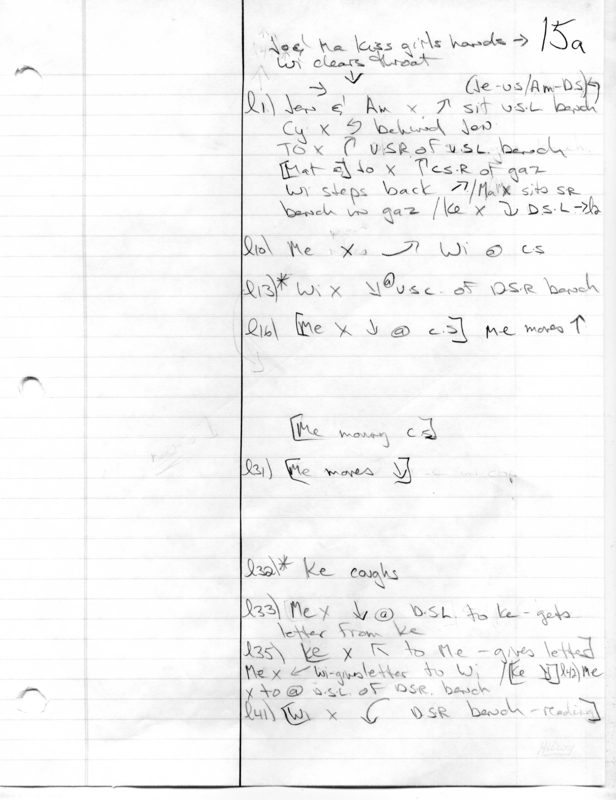 15a
Joe' Ma kiss girls hands →
Wi clears throat ↓
→ (Je-us/Am-DS)
l1) Jen & Am x ↗ sit U.S.L bench
Cy x behind Jen
TO x ↑ U.S.R of U.S.L. bench
[Mat @] to x ↑ C.S.R of gaz
Wi steps back ↗/Ma x sits SR
bench in gaz / Ke x ↓ D.S.L →
l10) Me x → Wi @ CS
l13)* Wi x ↓ @ U.S.C. of D.S.R bench
l16) [Me x ↓ @ C.S] Me moves ↑
[Me moving C.S]
l31) [Me moves ↓]
l32)* Ke coughs
l33) Me x ↓ @ D.S.L. to Ke - gets
letter from Ke
l35) Ke x ↖ to Me - gives letter]
Me x ↙ Wi-gives letter to Wi /[Ke ↓] l43) Me
x to @ U.S.L. OF DSR. bench
l41) [Wi x DSR bench - reading]